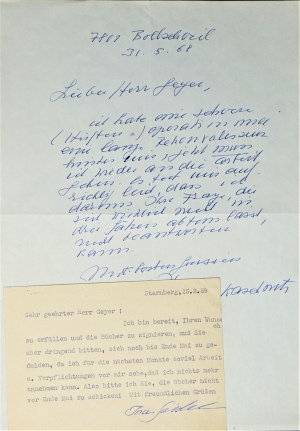 7801 Bollschweil
31.5.68
Lieber Herr Geyer,
ich habe eine schwere
(Hüften-) operation und
eine lange Rekonvaleszenz
hinter mir, jetzt muss
ich wieder an die Arbeit
gehen. Es tut mir auf-
richtig leid, dass ich
Ihre Frage, die
nicht
kann.
Mit besten Grüssen
Kaschnitz
Starnberg, 20.2.69
Sehr geehrter Herr Geyer :
Ich bin bereit, Ihren Wunsch
zu erfüllen und die Bücher zu signieren, muß Sie
aber dringend bitten, sich noch bis Ende Mai zu ge-
dulden, da ich für die nächsten Monate soviel Arbeit
u. Verpflichtungen vor mir sehe, daß ich nichts mehr
annehmen kann. Also bitte ich Sie, die Bücher nicht
vor Ende Mai zu schicken! Mit freundlichen Grüßen